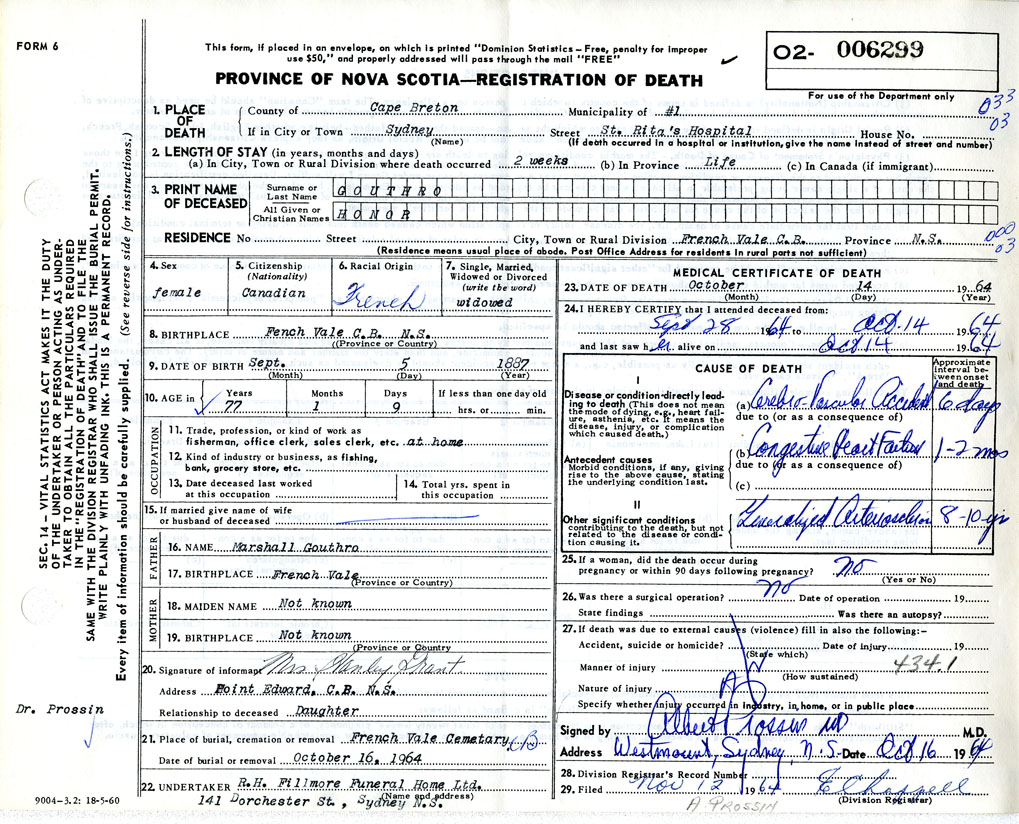 FORM 6
This form, if placed in an envelope, on which is printed "Dominion Statistics – Free, penalty for improper
use $50," and properly addressed will pass through the mail "FREE"
PROVINCE OF NOVA SCOTIA—REGISTRATION OF DEATH
O2- 006299
For use of the Department only
033
03
1. PLACE OF DEATH
County of Cape Breton Municipality of #1
If in City or Town Sydney Street St. Rita's Hospital House No.
(Name) (If death occurred in a hospital or institution, give the name instead of street and number)
2. LENGTH OF STAY (in years, months and days)
(a) In City, Town or Rural Division where death occurred 2 weeks (b) In Province Life (c) In Canada (if immigrant)
3. PRINT NAME OF DECEASED
Surname or Last Name GOUTHRO
All Given or Christian Names HONOR
RESIDENCE No Street City, Town or Rural Division French Vale C.B. Province N.S.
000
03
(Residence means usual place of abode. Post Office Address for residents in rural parts not sufficient)
4. Sex
female
5. Citizenship
(Nationality)
Canadian
6. Racial Origin
French
7. Single, Married,
Widowed or Divorced
(write the word)
widowed
8. BIRTHPLACE Fench Vale C.B. N.S.
(Province or Country)
9. DATE OF BIRTH Sept. 5 1887
(Month) (Day) (Year)
10. AGE in
Years Months Days If less than one day old
77 1 9 hrs. or min.
OCCUPATION
11. Trade, profession, or kind of work as
fisherman, office clerk, sales clerk, etc. at home
12. Kind of industry or business, as fishing,
bank, grocery store, etc.
13. Date deceased last worked
at this occupation
14. Total yrs. spent in
this occupation
15. If married give name of wife
or husband of deceased
FATHER
16. NAME Marshall Gouthro
17. BIRTHPLACE French Vale
(Province or Country)
MOTHER
18. MAIDEN NAME Not known
19. BIRTHPLACE Not known
(Province or Country)
20. Signature of informant Mrs Stanley Grant
Address Point Edward, C.B. N.S.
Relationship to deceased Daughter
21. Place of burial, cremation or removal French Vale Cemetary, CB
Date of burial or removal October 16, 1964
22. UNDERTAKER R.H. Fillmore Funeral Home Ltd.
(Name and address)
141 Dorchester St., Sydney N.S.
MEDICAL CERTIFICATE OF DEATH
23. DATE OF DEATH October 14 1964
(Month) (Day) (Year)
24. I HEREBY CERTIFY that I attended deceased from:
Sept 28 1964 to Oct. 14 1964
and last saw her alive on Oct 14 1964
CAUSE OF DEATH
Approximate
interval be-
tween onset
and death
I
Disease or condition directly lead-
ing to death (This does not mean
the mode of dying, e.g., heart fail-
ure, asthenia, etc. It means the
disease, injury, or complication
which caused death.)
(a) Cerebro-Vascular Accident 6 days
due to (or as a consequence of)
Antecedent causes
Morbid conditions, if any, giving
rise to the above cause, stating
the underlying condition last.
(b) Congestive Heart Failure 1-2 mos
due to (or as a consequence of)
(c)
II
Other significant conditions
contributing to the death, but not
related to the disease or condi-
tion causing it.
Generalized Arteriosclerosis 8-10 yrs
25. If a woman, did the death occur during
pregnancy or within 90 days following pregnancy? No
(Yes or No)
26. Was there a surgical operation? No Date of operation 19
State findings Was there an autopsy?
27. If death was due to external causes (violence) fill in also the following:–
Accident, suicide or homicide? Date of injury 19
(State which)
434.1
Manner of injury
(How sustained)
Nature of injury
Specify whether injury occurred in industry, in home, or in public place
Signed by Albert Prossin MD M.D.
Address Westmount, Sydney, N.S. Date Oct 16 1964
28. Division Registrar's Record Number
29. Filed Nov 12 1964
(Division Registrar)
A PROSSIN
SEC. 14 – VITAL STATISTICS ACT MAKES IT THE DUTY
OF THE UNDERTAKER OR PERSON ACTING AS UNDER-
TAKER TO OBTAIN ALL THE PARTICULARS REQUIRED
IN THE "REGISTRATION OF DEATH" AND TO FILE THE
SAME WITH THE DIVISION REGISTRAR WHO SHALL ISSUE THE BURIAL PERMIT.
WRITE PLAINLY WITH UNFADING INK. THIS IS A PERMANENT RECORD.
Every item of information should be carefully supplied. (See reverse side for instructions.)
Dr. Prossin
9004-3.2: 18-5-60